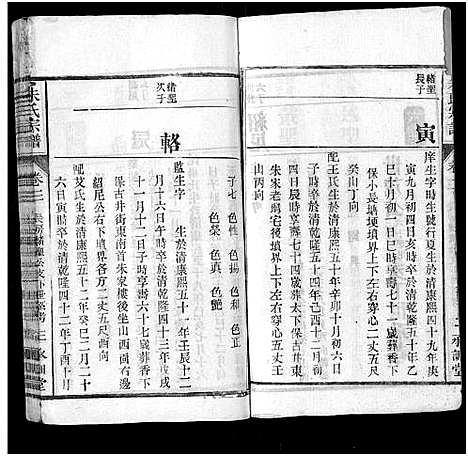 緒聖
長子
寅
庠生字時生號行夏生於清康熙四十九年庚
寅九月初四日亥時卒於清乾隆四十五年庚
子十月初一日巳時享壽七十一歲葬香下
保小長塘埂填界上下左右穿心二丈五尺
癸山丁向
配王氏生於清康熙五十年辛卯十月初六日
子時卒於清乾隆五十四年己酉十二月初
四日巳時享壽七十九歲葬香下太保古井東
朱宋老塥宅後填界上下左右穿心二丈五尺
山丙向
永訓堂
緒聖
次子
輅
子七 色性 色揚 色和 色正
色榮 色眞 色艷
監生字 生於清康熙五十一年壬辰十二
月十六日午時卒於清乾隆四十三年戊戌
十一月十二日子時享壽六十七歲葬香下
保古井街東南首朱家樓後坐山西向三
紹尼公右下填界各方二丈五尺西向
配艾氏生於清康熙五十二年癸巳二月二十
六日寅時卒於清乾隆四十二年丁酉十月
朱氏宗譜
卷三
永訓堂